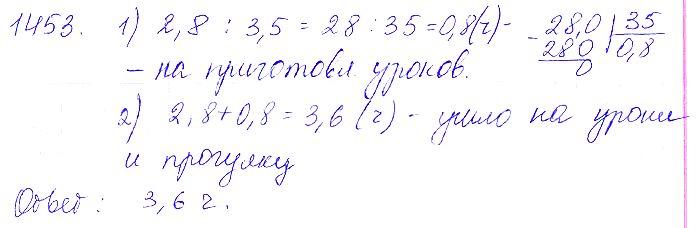 1453. 1) 2,8 : 3,5 = 28 : 35 = 0,8(ч) -
- на приготовл. уроков.
28,0 | 35
280 | 0,8
0
2) 2,8 + 0,8 = 3,6 (ч) - ушло на уроки
и прогулку
Ответ: 3,6 ч.